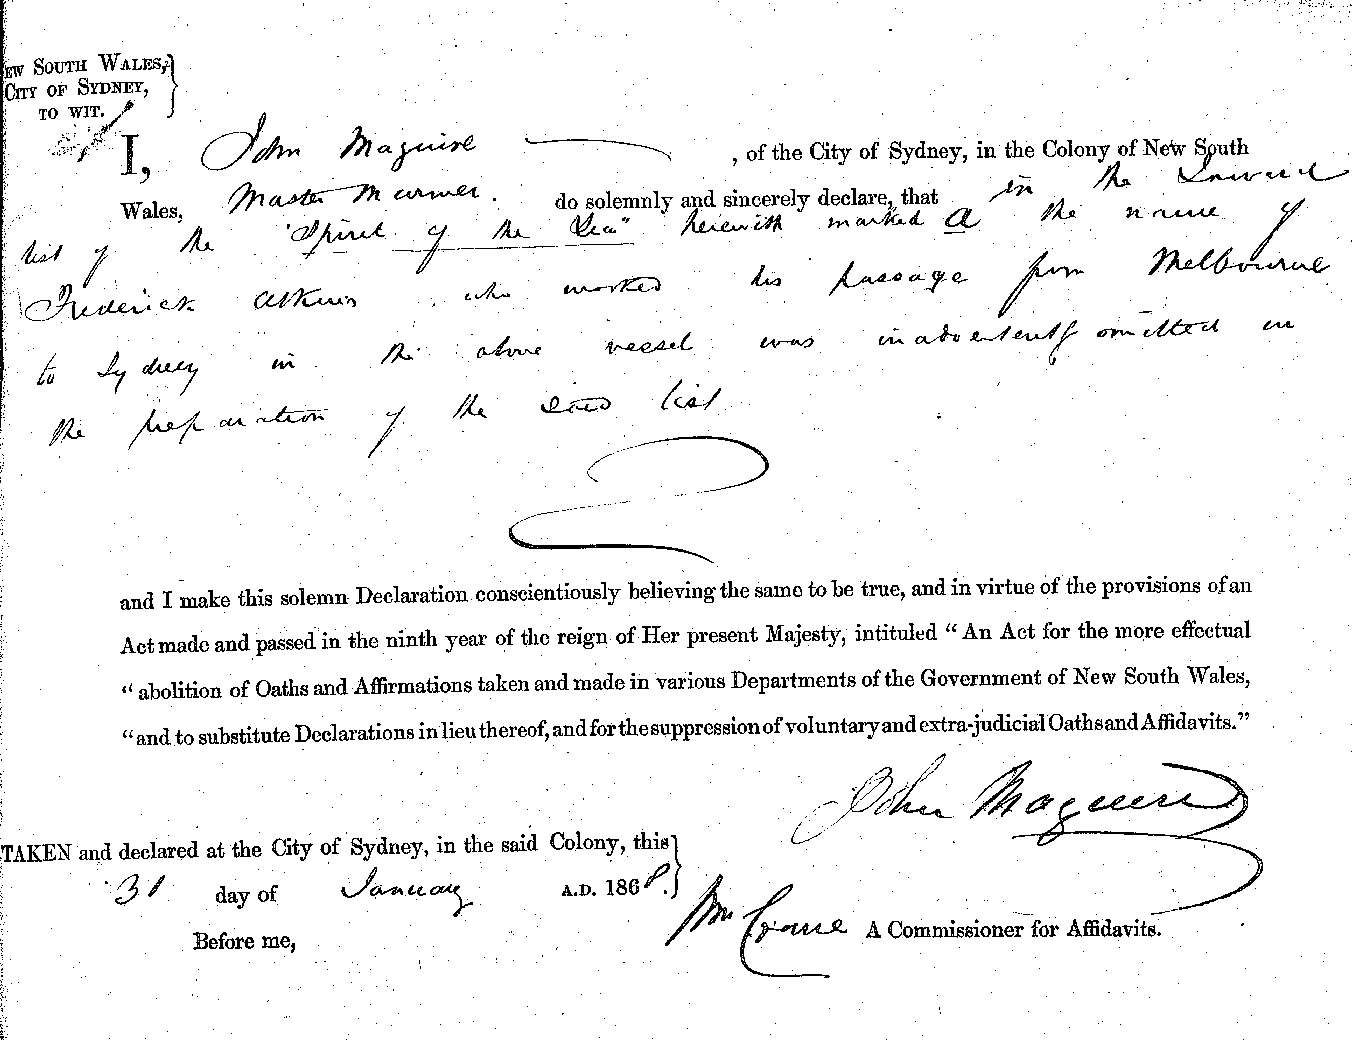 EW SOUTH WALES,
CITY OF SYDNEY,
TO WIT.
I, John Maguire , of the City of Sydney, in the Colony of New South
Wales, Master Mariner. do solemnly and sincerely declare, that in the Inward
list of the "Spirit of the Sea" herewith marked A the name of
Frederick Atkins who worked his passage from Melbourne
to Sydney in the above vessel was inadvertently omitted in
the preparation of the said list
and I make this solemn Declaration conscientiously believing the same to be true, and in virtue of the provisions of an
Act made and passed in the ninth year of the reign of Her present Majesty, intituled "An Act for the more effectual
"abolition of Oaths and Affirmations taken and made in various Departments of the Government of New South Wales,
"and to substitute Declarations in lieu thereof, and for the suppression of voluntary and extra-judicial Oaths and Affidavits."
John Maguire
TAKEN and declared at the City of Sydney, in the said Colony, this
31 day of January A.D. 1868.
Wm Crane A Commissioner for Affidavits.
Before me,